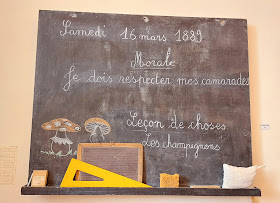 Samedi 16 mars 1889
Morale
Je dois respecter mes camarades
Leçon de choses
Les champignons